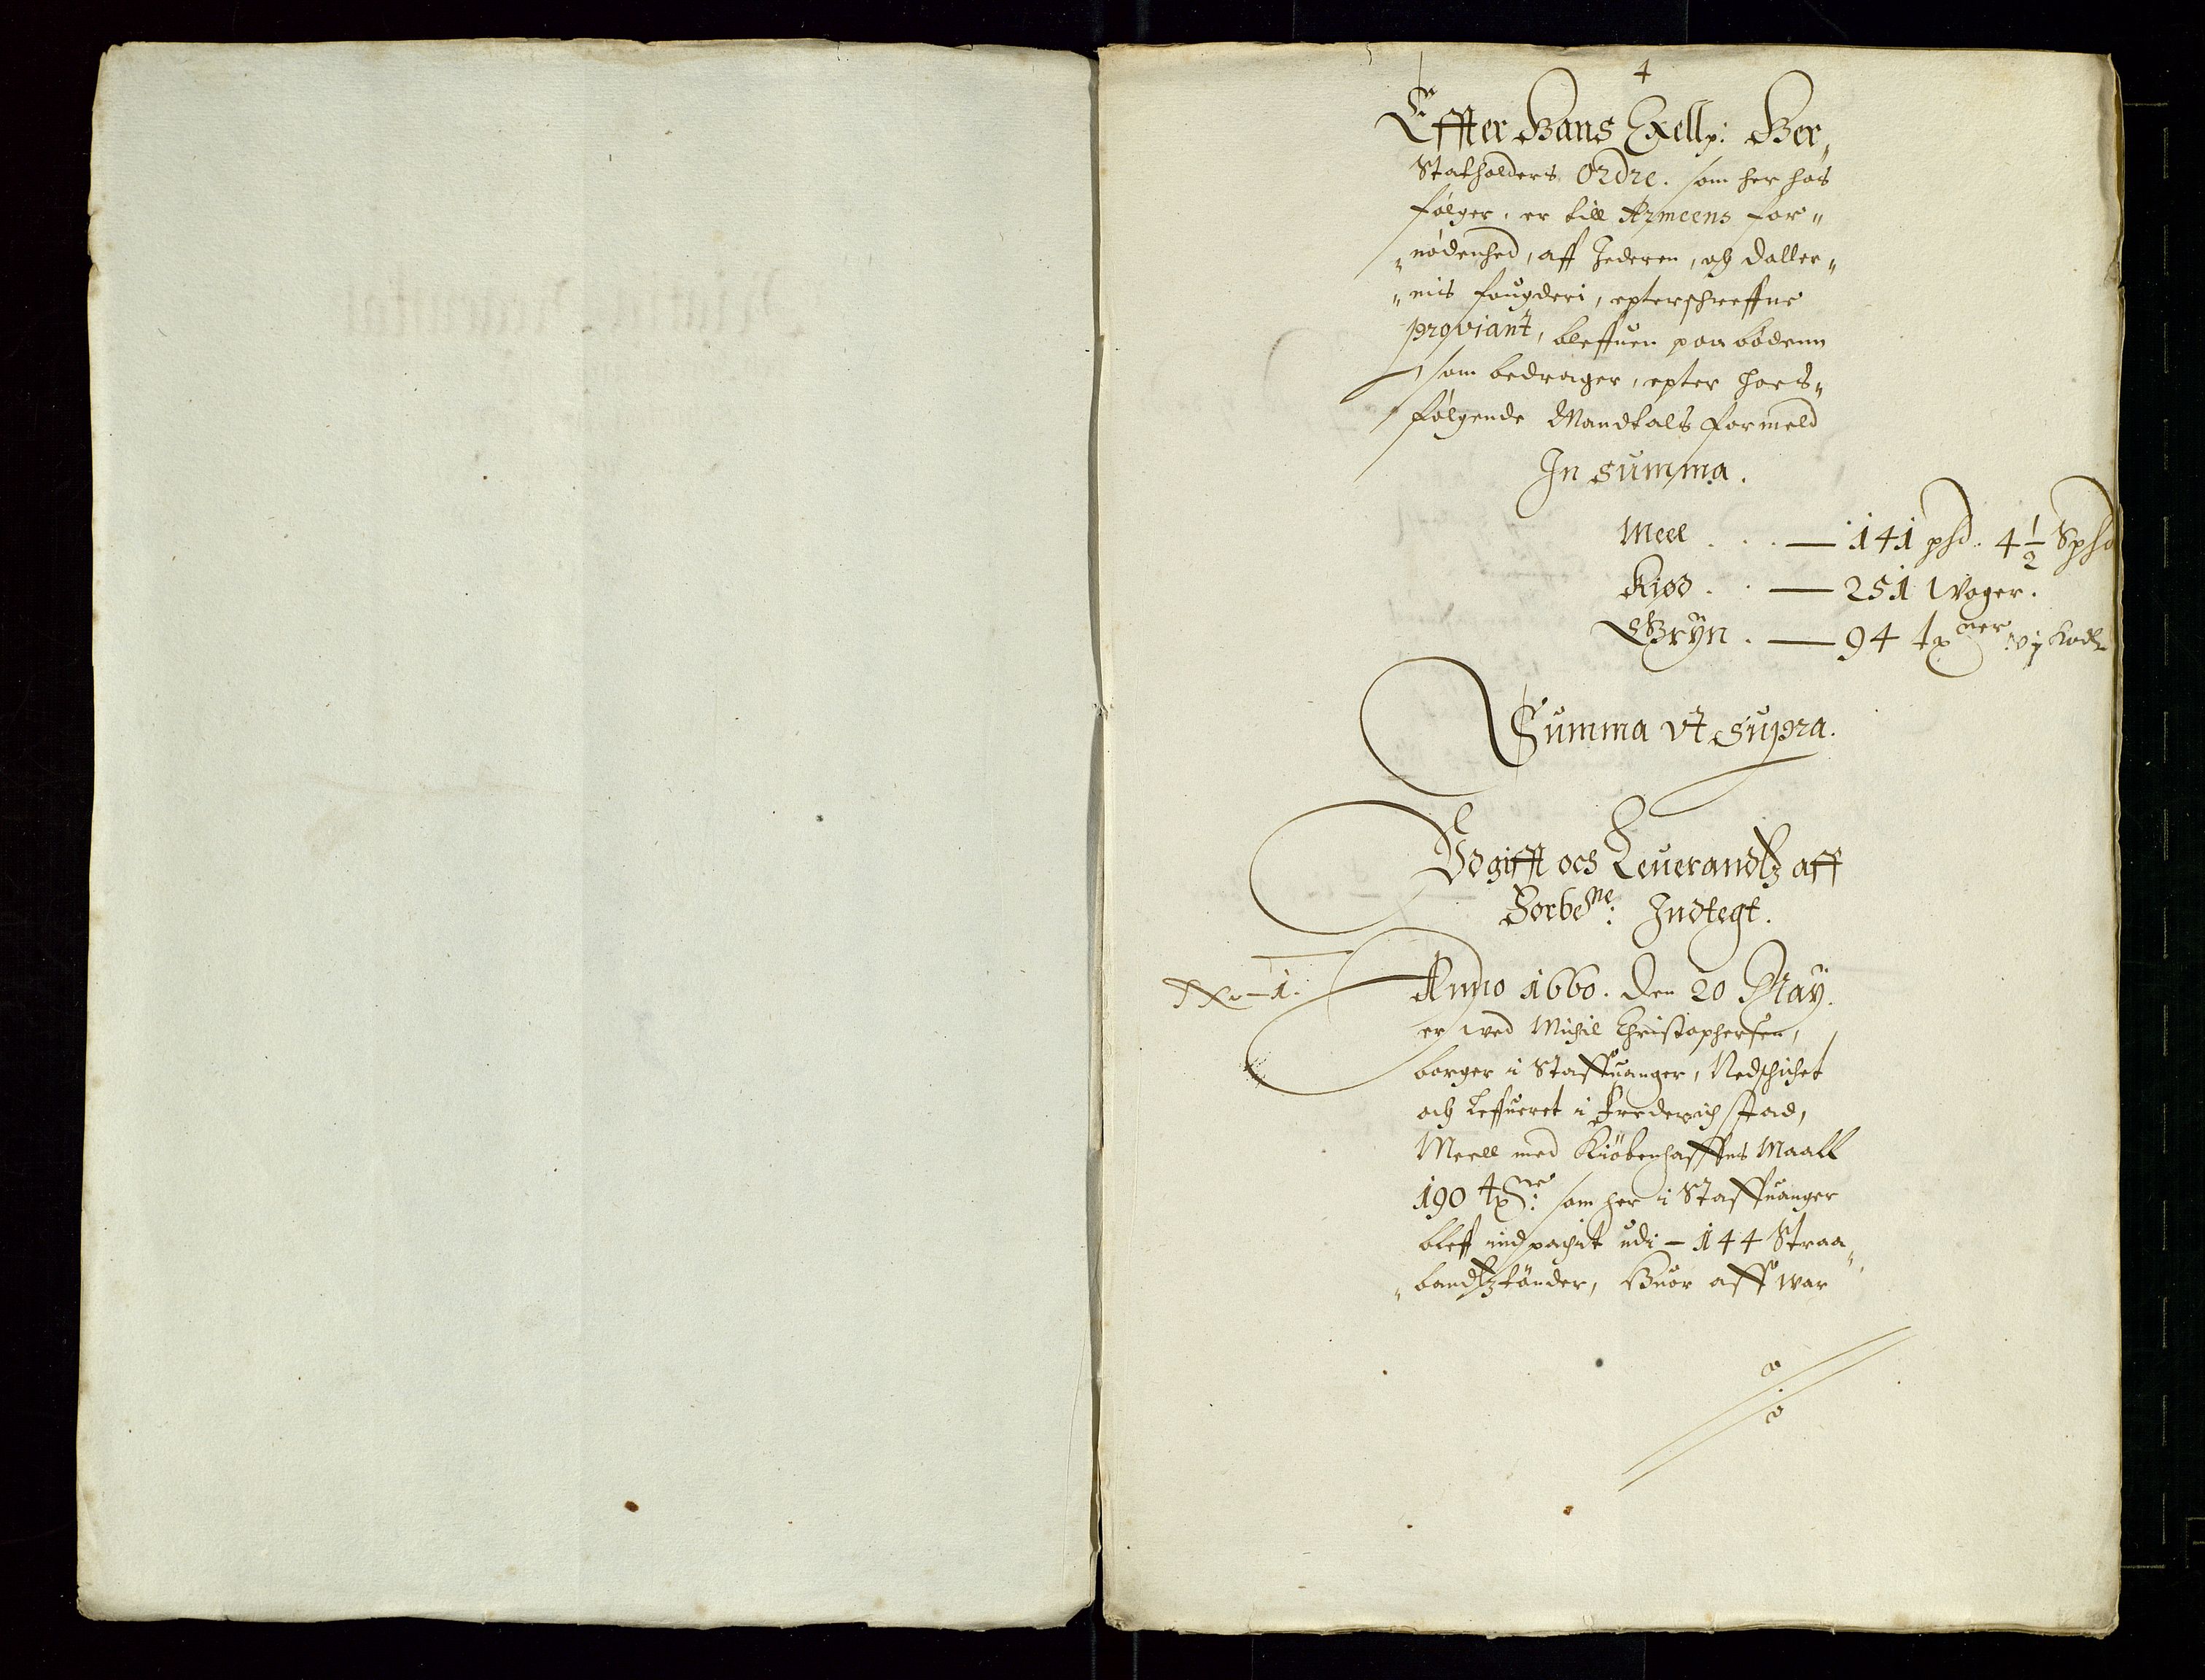 4
Effter Hans Exell: Her„
Statholders Ordre. som her hos
følger, er till Armeens for„
„nødenhed, aff Jederen, och Daller„
„nis fougderi, epterschreffne
proviant, bleffuen paabødenn
som bedrager, epter hoes„
følgende Mandtals formeld
In Summa.
Meel . . . — 141 pd. 4 1/2 Spd
Kiød . . — 251 Woger.
Gryn . — 94 tner
Summa vt supra.
Vdgifft och Leuerandtz aff
Forbene: Indtegt.
No—1.
Anno 1660. Den 20 May.
er wed Michil Christophersen,
borger i Staffuanger, Nedschichet
och Leffueret i Frederichstad,
Meell med Kiöbenhaffns Maall
190 tnr: som her i Staffuanger
bleff indpachit udi — 144 Straa„
„bandtztønder, Huor aff war